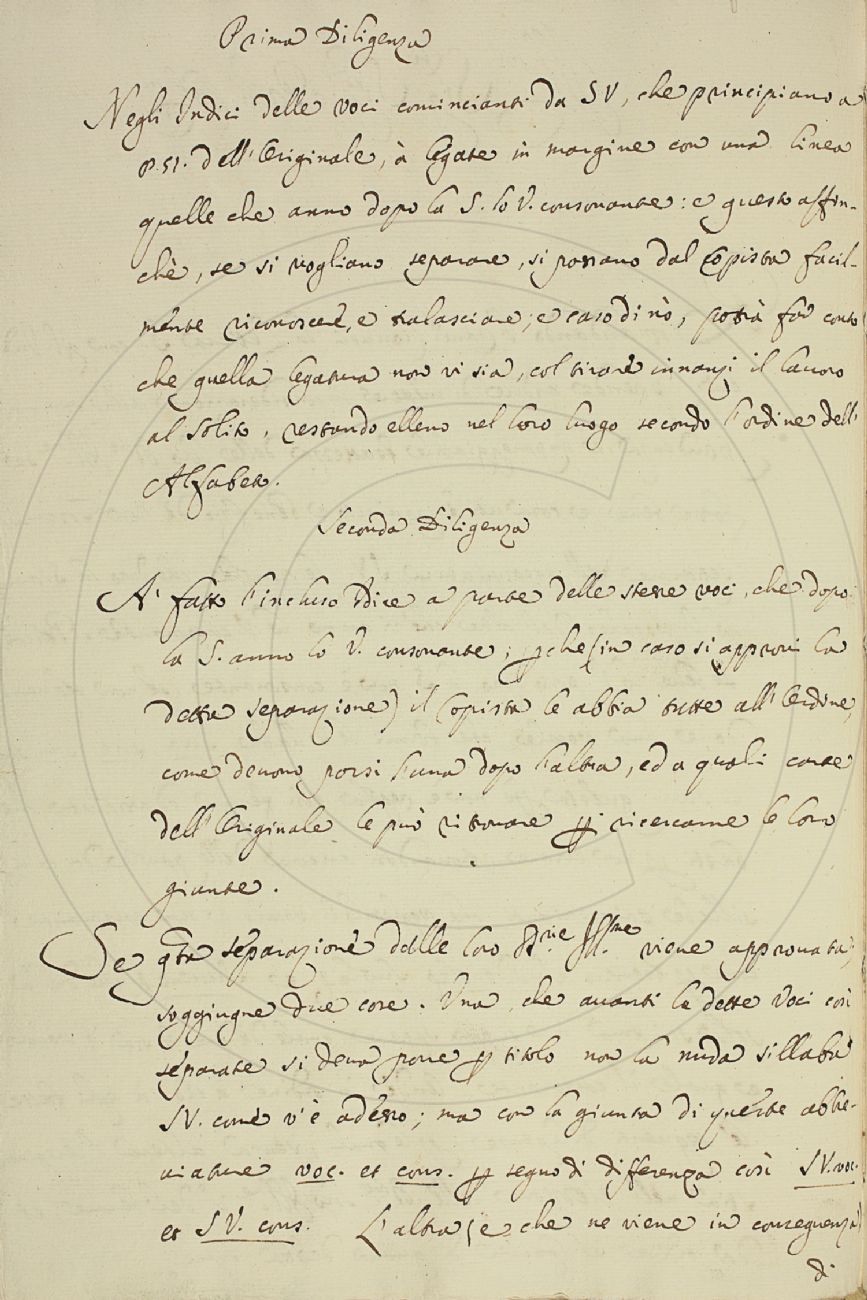 Prima Diligenza
Negli Indici delle voci comincianti da SV, che principiano a
p. 51. dell'Originale, à legate in margine con una linea
quelle che anno dopo la S. lo V. consonante: e questo affin-
chè, se si vogliano separare, si possano dal Copista facil-
mente riconoscere, e tralasciare; e caso di nò, potrà far conto
che quella legatura non vi sia, col tirare innanzi il lavoro
al solito, restando elleno nel loro luogo secondo l'ordine dell'
Alfabeto.
Seconda Diligenza
A' fatto l'incluso Indice a parte delle stesse voci, che dopo
la S. anno lo V. consonante; pche (in caso si approvi la
detta separazione) il Copista le abbia tutte all'Ordine,
come devono porsi l'una dopo l'altra, ed a quali carte
dell'Originale le può ritrovare p ricercarne le loro
giunte.
Se qsta separazione dalle loro Srie Illme viene approvata,
soggiugne due cose. Una, che avanti le dette Voci così
separate si deva porre p titolo non la nuda sillaba
SV. come v'è adesso; ma con la giunta di queste abbre-
viature voc. et cons. p segno di differenza così SV. voc.
et SV. cons. L'altra (e che ne viene in conseguenza)
di